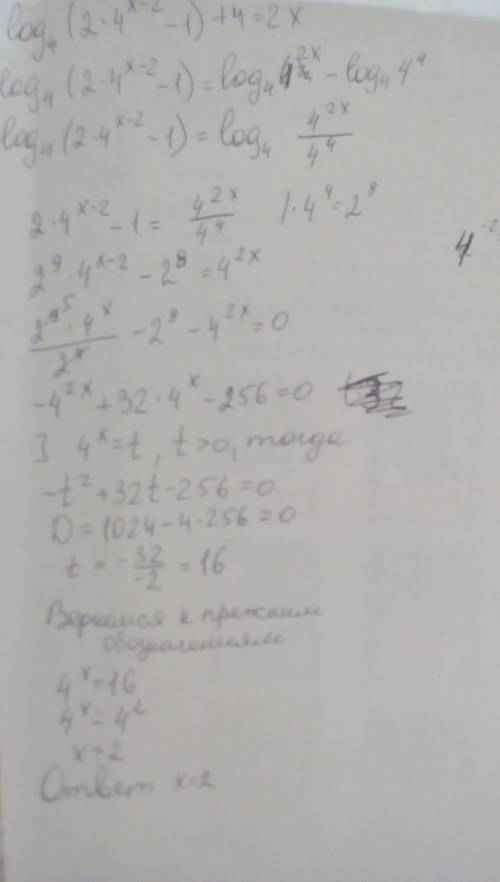 log₄(2·4^(x-2) -1)+4=2x
log₄(2·4^(x-2) -1)=log₄4^(2x) - log₄4⁴
log₄(2·4^(x-2) -1)=log₄ 4^(2x)/4⁴
2·4^(x-2) -1= 4^(2x)/4⁴ /·4⁴=2⁸
4^(-2)
2⁹·4^(x-2) -2⁸=4^(2x)
2⁵·4^x/2⁴ -2⁸-4^(2x)=0
-4^(2x)+32·4^x-256=0
] 4^x=t, t>0, тогда
-t²+32t-256=0
D=1024-4·256=0
t = -32/-2 = 16
Вернимся к прежним
обозначениям
4^x=16
4^x=4²
x=2
Ответ x=2